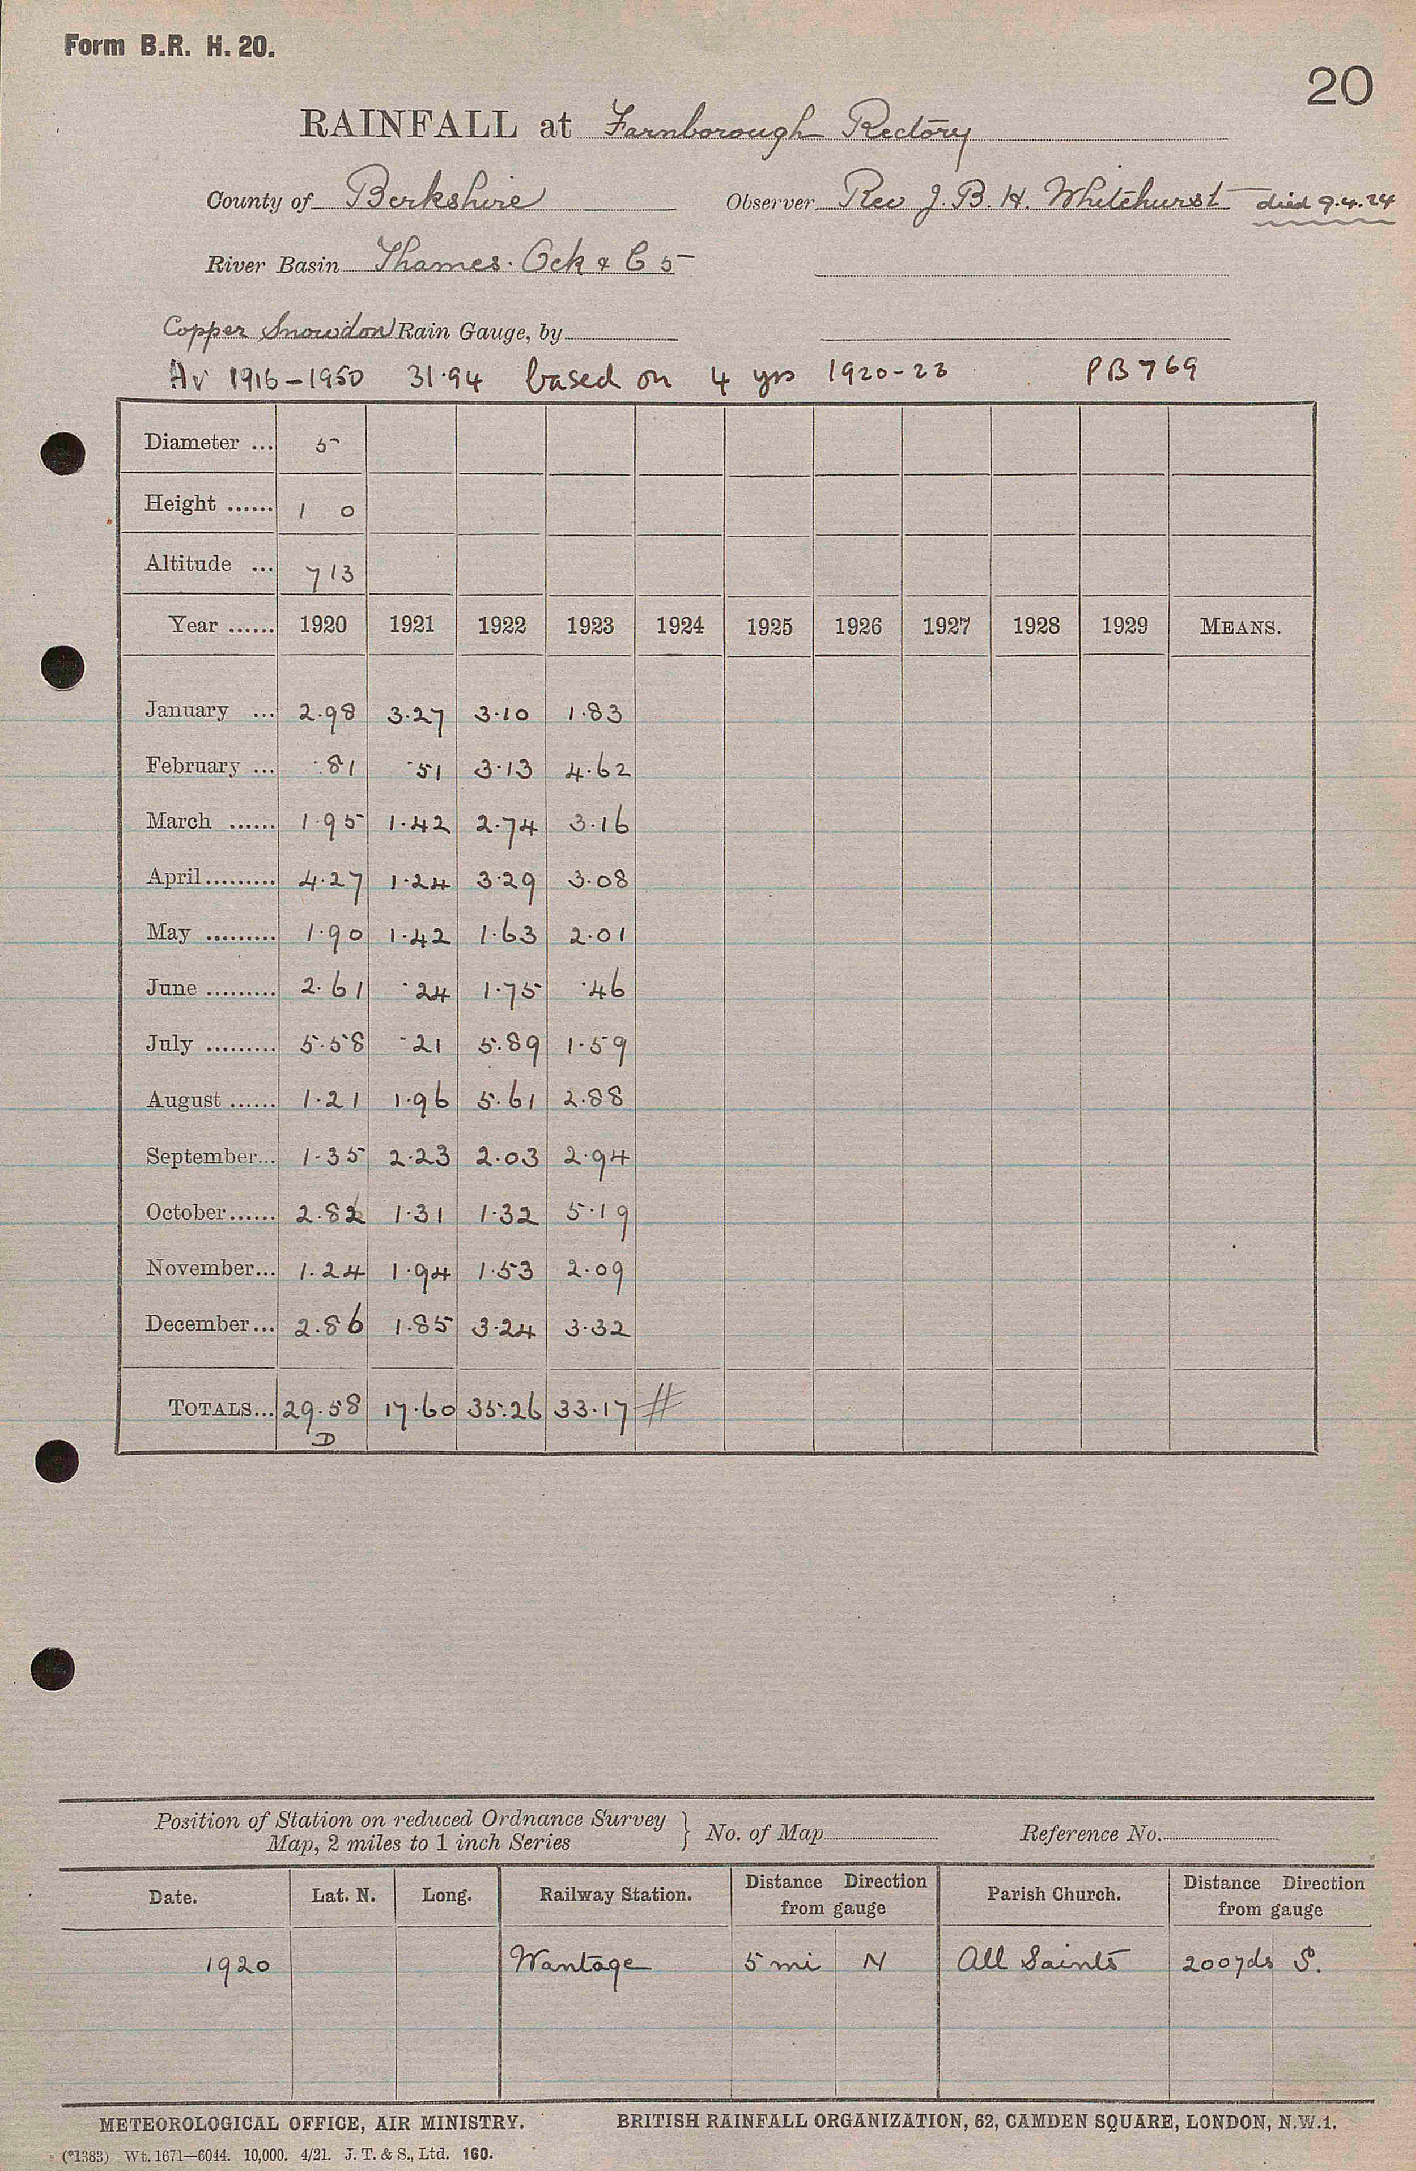 Form B.R. H. 20.
20
RAINFALL at Farnborough Rectory
County of Berkshire Observer Rev J. B. H. Whitehurst died 9.4.24
River Basin Thames. Ock & C 5
Copper Snowdon Rain Gauge, by
Av 1916-1950 31.94 based on 4 yrs 1920-23 PB769
Diameter ... 5
Height ...... 1 0
Altitude ... 713
Year ...... 1920 1921 1922 1923 1924 1925 1926 1927 1928 1929 MEANS.
January ... 2.98 3.27 3.10 1.83
February ... .81 .51 3.13 4.62
March ...... 1.95 1.42 2.74 3.16
April......... 4.27 1.24 3.29 3.08
May ......... 1.90 1.42 1.63 2.01
June ......... 2.61 .24 1.75 .46
July ......... 5.58 .21 5.89 1.59
August ...... 1.21 1.96 5.61 2.88
September... 1.35 2.23 2.03 2.94
October...... 2.82 1.31 1.32 5.19
November... 1.24 1.94 1.53 2.09
December... 2.86 1.85 3.24 3.32
TOTALS... 29.58 17.60 35.26 33.17 #
D
Position of Station on reduced Ordnance Survey
Map, 2 miles to 1 inch Series } No. of Map Reference No.
Date. Lat. N. Long. Railway Station. Distance Direction from gauge Parish Church. Distance Direction from gauge
1920 Wantage 5 mi N All Saints 200yds S.
METEOROLOGICAL OFFICE, AIR MINISTRY. BRITISH RAINFALL ORGANIZATION, 62, CAMDEN SQUARE, LONDON, N.W.1.
(*1383) Wt. 1671—6044. 10,000. 4/21. J. T. & S., Ltd. 160.